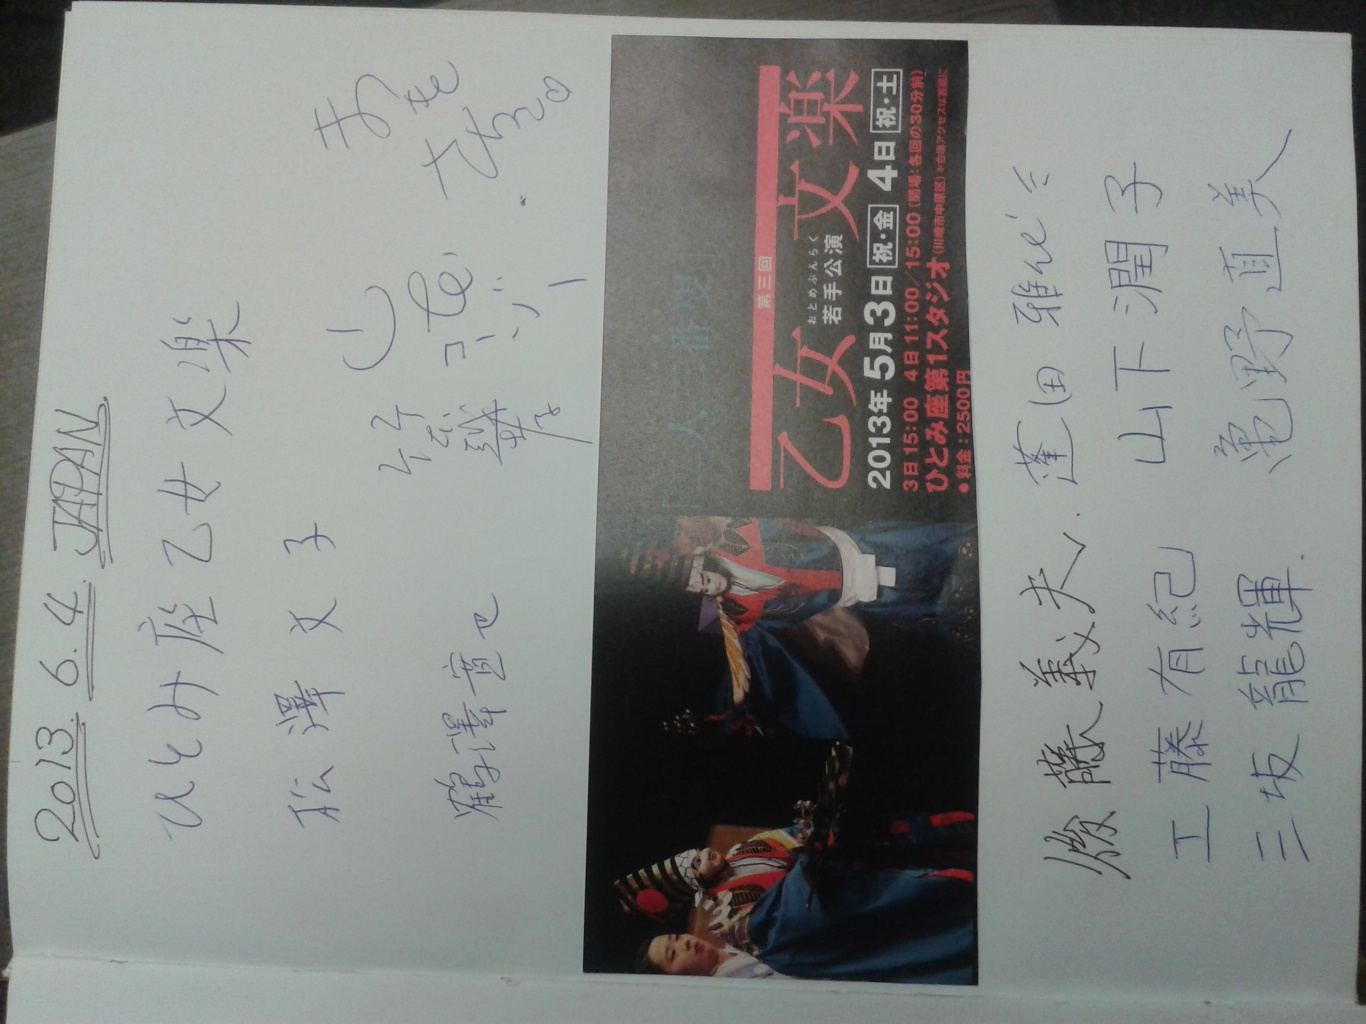 2013. 6. 4. JAPAN
ひとみ座乙女文楽
松澤文子
鶴澤寛也
「二人三番叟」
第三回
乙女文楽
おとめぶんらく
若手公演
2013年5月3日 祝・金 4日 祝・土
3日15:00 4日11:00/15:00(開場:各回の30分前)
ひとみ座第1スタジオ(川崎市中原区)※会場アクセスは裏面に
●料金:2500円
後藤義夫 蓬田雅代
工藤有紀 山下潤子
三坂龍輝. 亀野直美